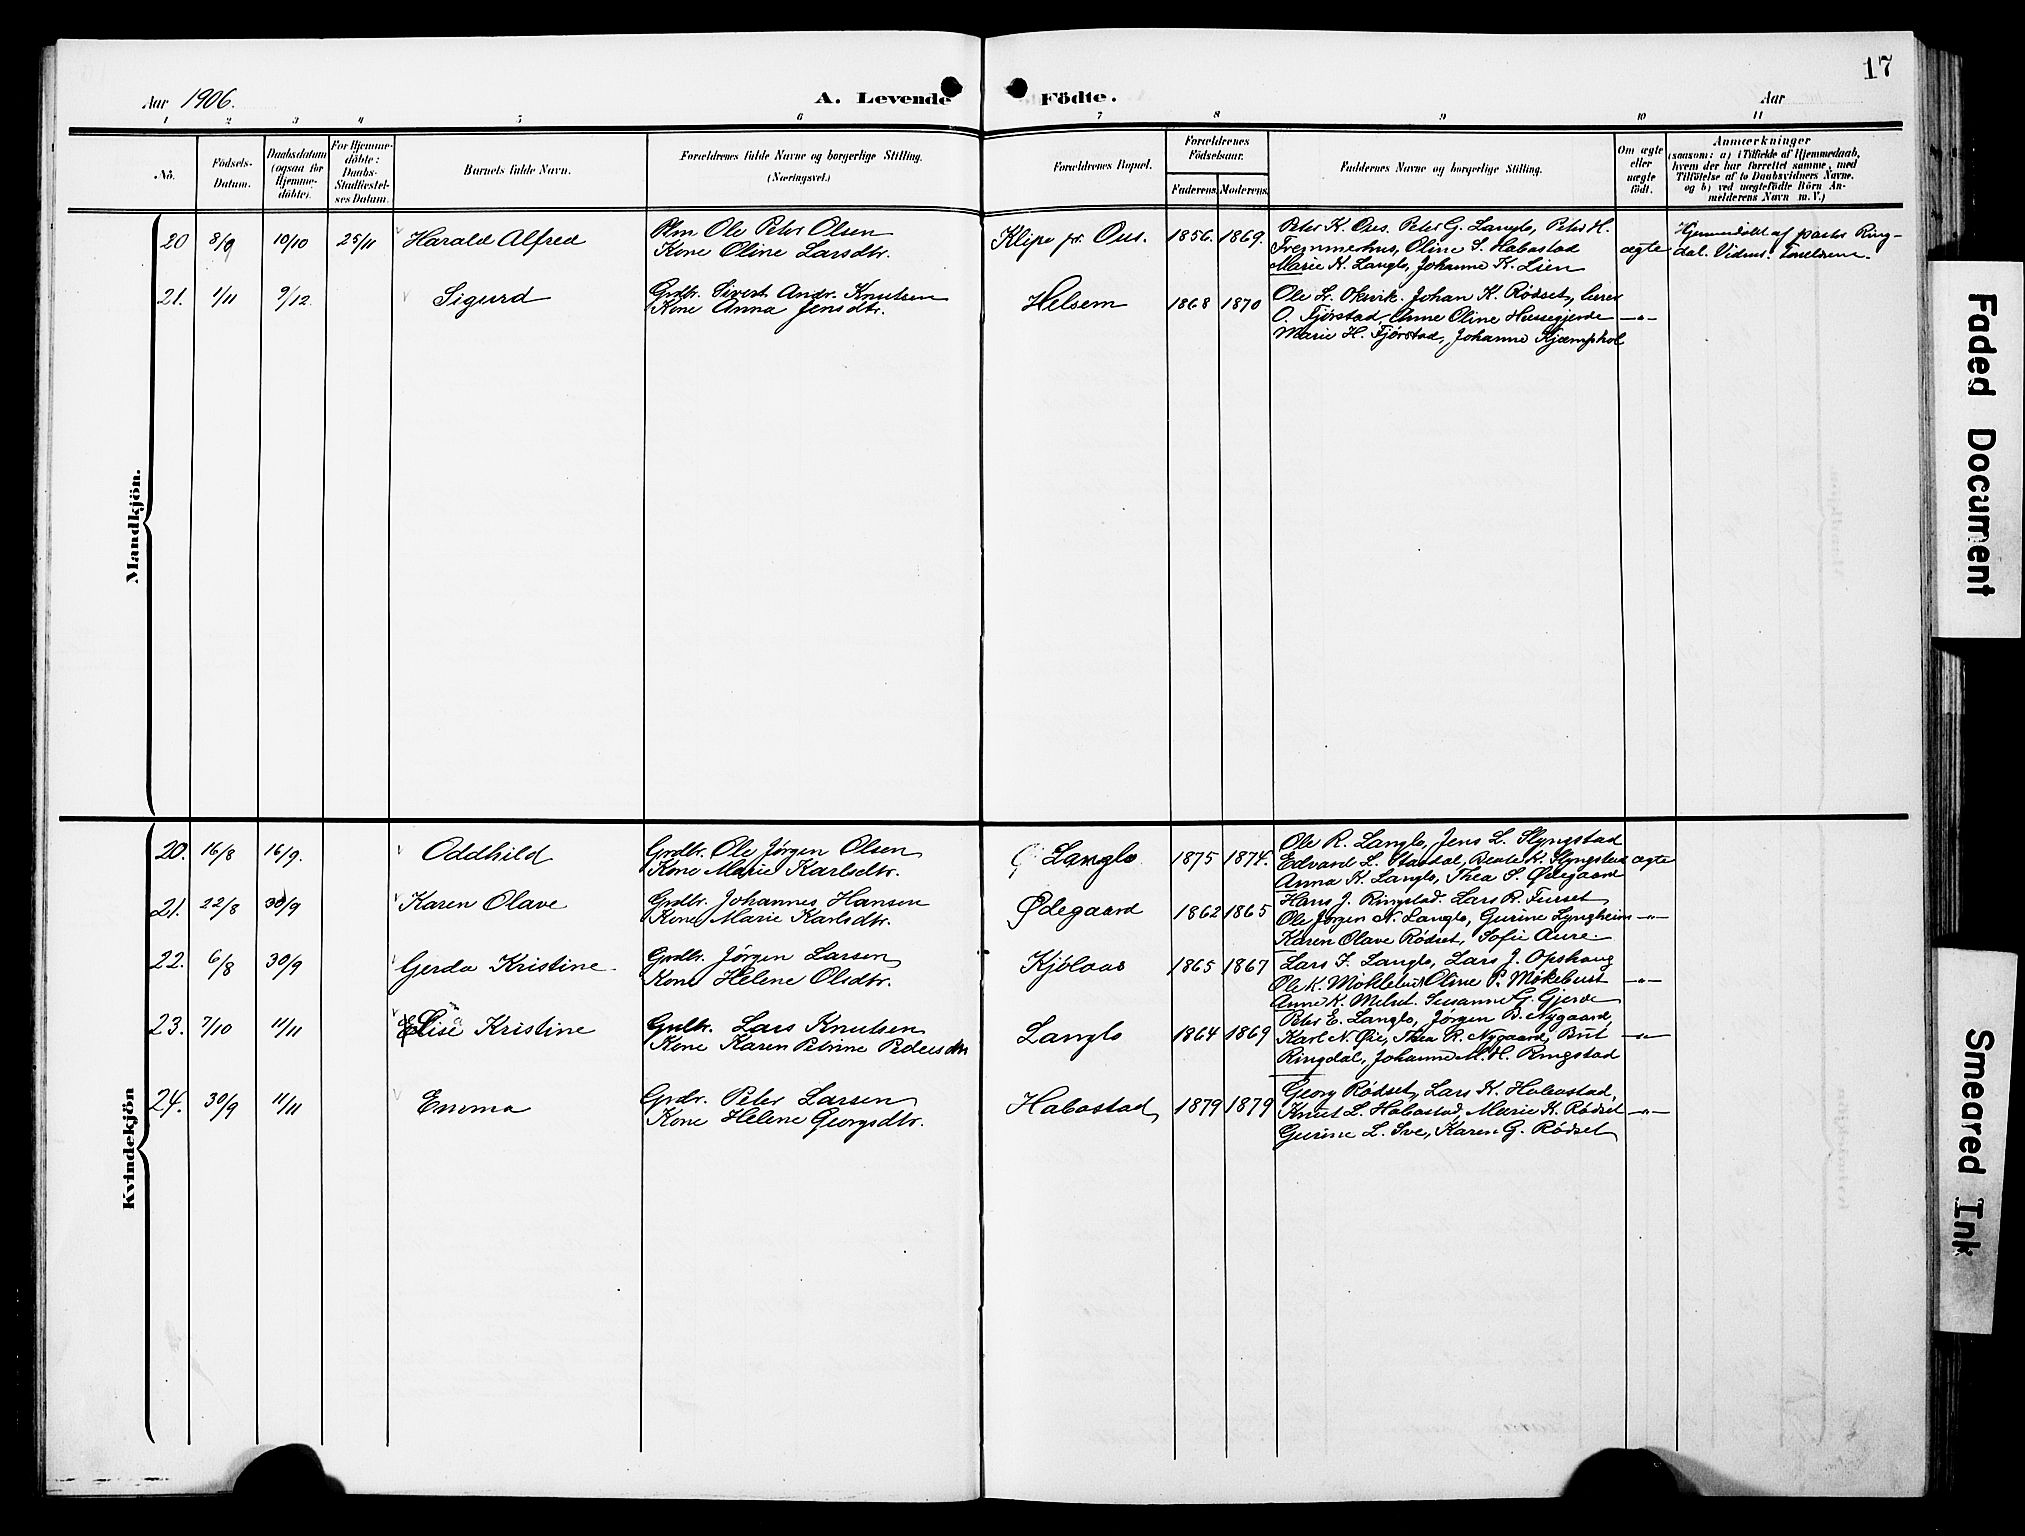 17
Aar 1906.
A. Levende Födte.
Aar
1 2 3 4 5 6 7 8 9 10 11
No.
Födsels-
Datum.
Daabsdatum
(ogsaa for
Hjemme-
döbte).
For Hjemme-
döbte:
Daabs-
Stadfæstel-
ses Datum.
Barnets fulde Navn.
Forældrenes fulde Navne og borgerlige Stilling.
(Næringsvei.)
Forældrenes Bopæl.
Forældrenes
Födselsaar.
Faderens. Moderens.
Faddernes Navne og borgerlige Stilling.
Om ægte
eller
uægte
födt.
Anmærkninger
(saasom: a) i Tilfælde af Hjemmedaab,
hvem der har forrettet samme, med
Tilföielse af to Daabsvidners Navne.
og b) ved uægtefödte Börn An-
melderens Navn m. V.)
Mandkjön.
20 8/9 10/10 25/11 Harald Alfred
Ole Peter Olsen
Kone Oline Larsdtr.
Klipe pr. Ous. 1856. 1869.
Peter K. Ous. Peter G. Langlo, Peter H.
Fremmerhus, Oline S. Habostad
Marie K. Langlo, Johanne K. Lien
ægte
Hjemmedøbt af pastor Ring-
dal. Vidner: Forældrene.
21. 1/11 9/12. Sigurd
Grdbr. Sivert Andr. Knutsen
Kone Anna Jensdtr.
Helsem 1868 1870
Ole Lr. Okvik. Johan K. Rødset, lærer
O. Fjørstad, Anne Oline Hussegjerde
Marie H. Fjørstad, Johanne Kjæmphol
—"—
Kvindekjön
20. 16/8 16/9. Oddhild
Grdbr. Ole Jørgen Olsen
Kone Marie Karlsdtr.
Langlo 1875 1874.
Ole R. Langlo, Jens L. Slyngstad
Edvard L. Stavdal, Beate K. Slyngstad
Anna K. Langlo, Thea S. Ødegaard
ægte
21. 22/8 30/9 Karen Olave
Grdbr. Johannes Hansen
Kone Marie Karlsdtr.
Ødegaard 1862 1865
Hans J. Ringstad. Lars R. Furset
Ole Jørgen N. Langlo, Gurine Lyngheim
Karen Olave Rødset, Sofie Aure.
—"—
22. 6/8 30/9 Gerda Kristine
Grdbr. Jørgen Larsen
Kone Helene Olsdtr.
Kjølaas 1865 1867
Lars F. Langlo, Lars J. Opshaug
Ole K. Møklebust Oline P. Møkebust
Anne K. Melset. Susanne G. Gjerde
—"—
23. 7/10 11/11 Elise Kristine
Grdbr. Lars Knutsen
Kone Karen Petrine Pedersdtr
Langlo 1864 1869
Peter E. Langlo, Jørgen B. Nygaard
Karl N. Øie, Thea R. Nygaard, Brit
Ringdal, Johanne M. H. Ringstad
—"—
24. 30/9 11/11 Emma
Grdbr. Peter Larsen
Kone Helene Georgsdtr.
Habostad 1879 1879
Georg Rødset, Lars K. Habostad,
Knut L. Habostad, Marie K. Rødset
Gurine L. Sve, Karen G. Rødset
—"—
Faded Document
Smeared Ink